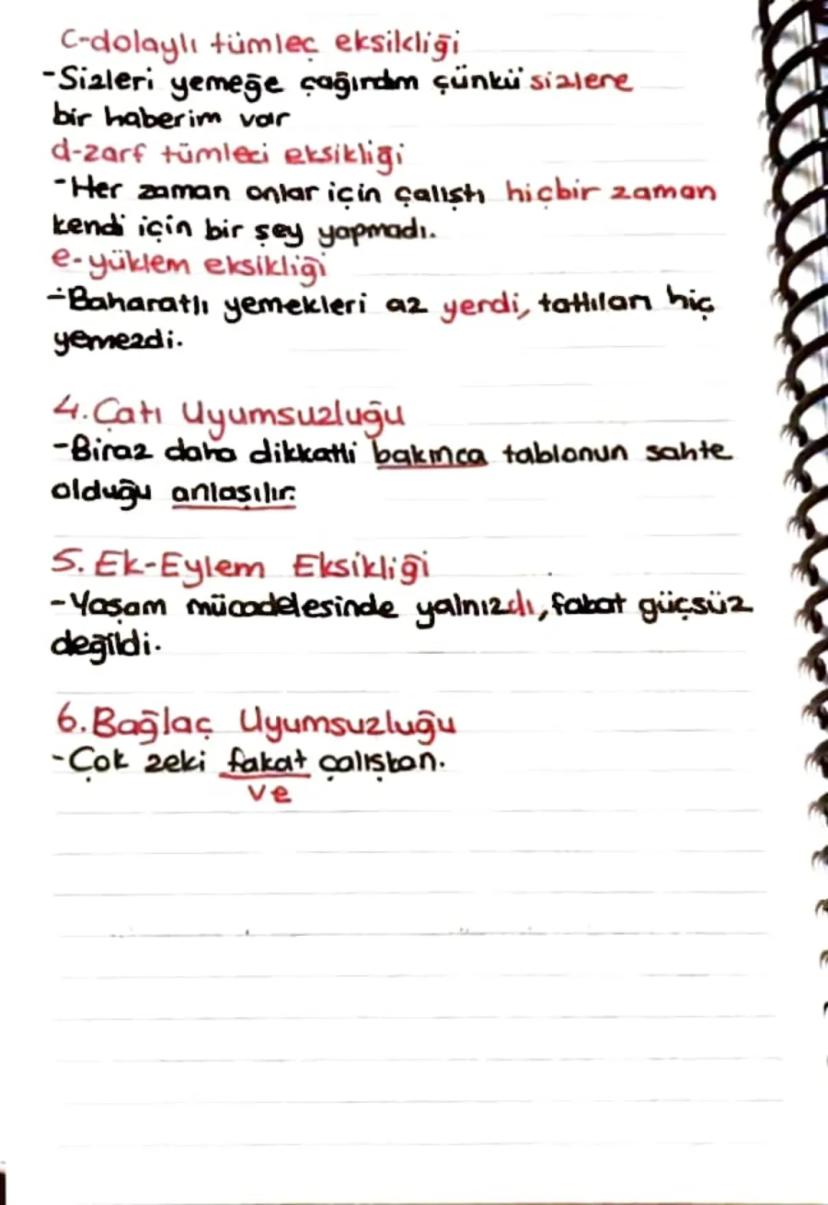 c-dolaylı tümleç eksikliği
-Sizleri yemeğe çağırdım çünkü sizlere
bir haberim var
d-zarf tümleci eksikliği
-Her zaman onlar için çalıştı hiçbir zaman
kendi için bir şey yapmadı.
e-yüklem eksikliği
-Baharatlı yemekleri az yerdi, tatlıları hiç
yemezdi.
4.Çatı Uyumsuzluğu
-Biraz daha dikkatli bakınca tablonun sahte
olduğu anlaşılır.
5.Ek-Eylem Eksikliği
-Yaşam mücadelesinde yalnızdı, fakat güçsüz
değildi.
6.Bağlaç Uyumsuzluğu
-Çok zeki fakat çalışkan.
ve